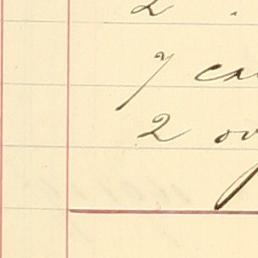 2
7 ca
2 ov